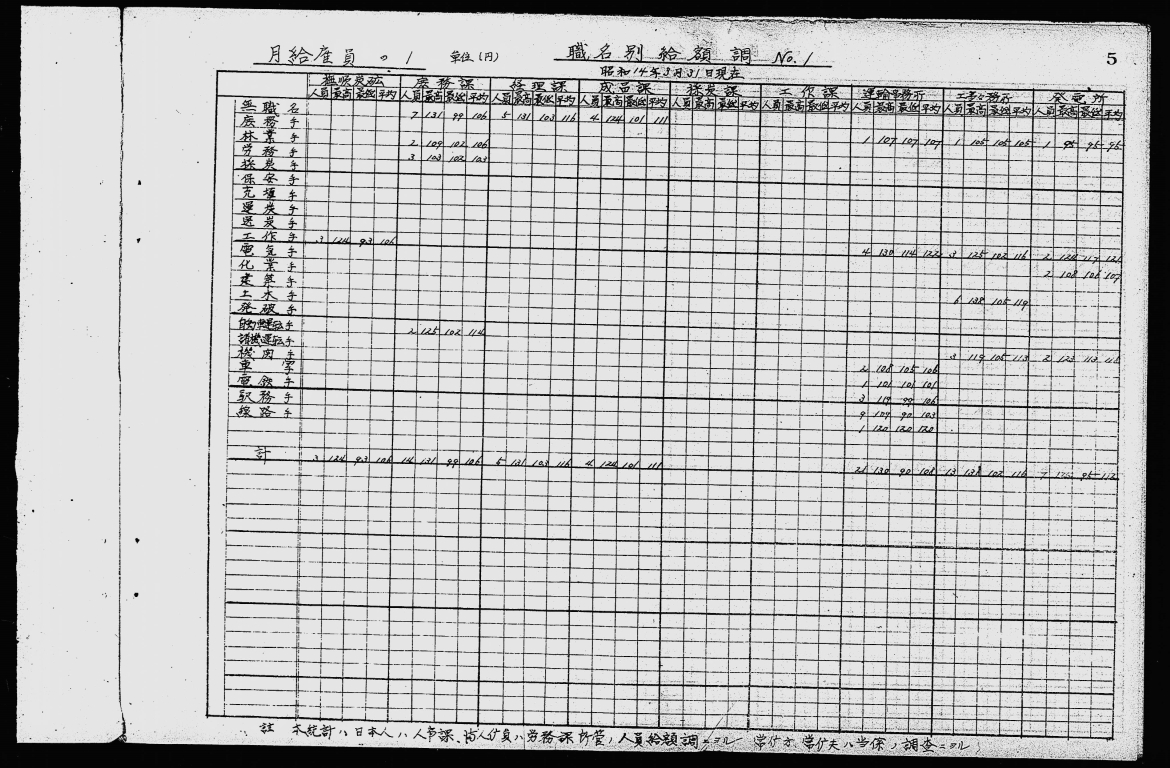 月給雇員 1 単位(円) 職名別給額調 No.1 5
昭和14年3月31日現在
撫順炭砿 庶務課 経理課 成品課 採炭課 工作課 運輸事務所 工事事務所 発電所
人員 最高 最低 平均 人員 最高 最低 平均 人員 最高 最低 平均 人員 最高 最低 平均 人員 最高 最低 平均 人員 最高 最低 平均 人員 最高 最低 平均 人員 最高 最低 平均 人員 最高 最低 平均
無職名 7 131 99 106 5 131 103 116 4 124 101 111
庶務手
林業手 2 109 102 106 1 107 107 107 1 105 105 105 1 95 95 95
労務手 3 103 102 103
採炭手
保安手
充填手
運炭手
選炭手
工作手 3 124 93 106
電気手 4 130 114 122 3 125 102 116 2 124 117 121
化業手 2 108 106 107
建築手
土木手 6 138 105 119
発破手
自動車運転手 2 125 102 114
諸機運転手
機関手 3 119 105 113 2 123 113 118
車掌 2 108 105 106
電鉄手 1 101 101 101
駅務手 3 119 99 106
線路手 9 109 90 103
1 120 120 120
計 3 124 93 106 14 131 99 106 5 131 103 116 4 124 101 111 21 130 90 108 13 138 102 116 7 95 112
註 本統計ハ日本人ハ人事課、満人傭員ハ労務課所管ノ人員給額調ニヨル 常傭方常傭夫ハ当係ノ調査ニヨル